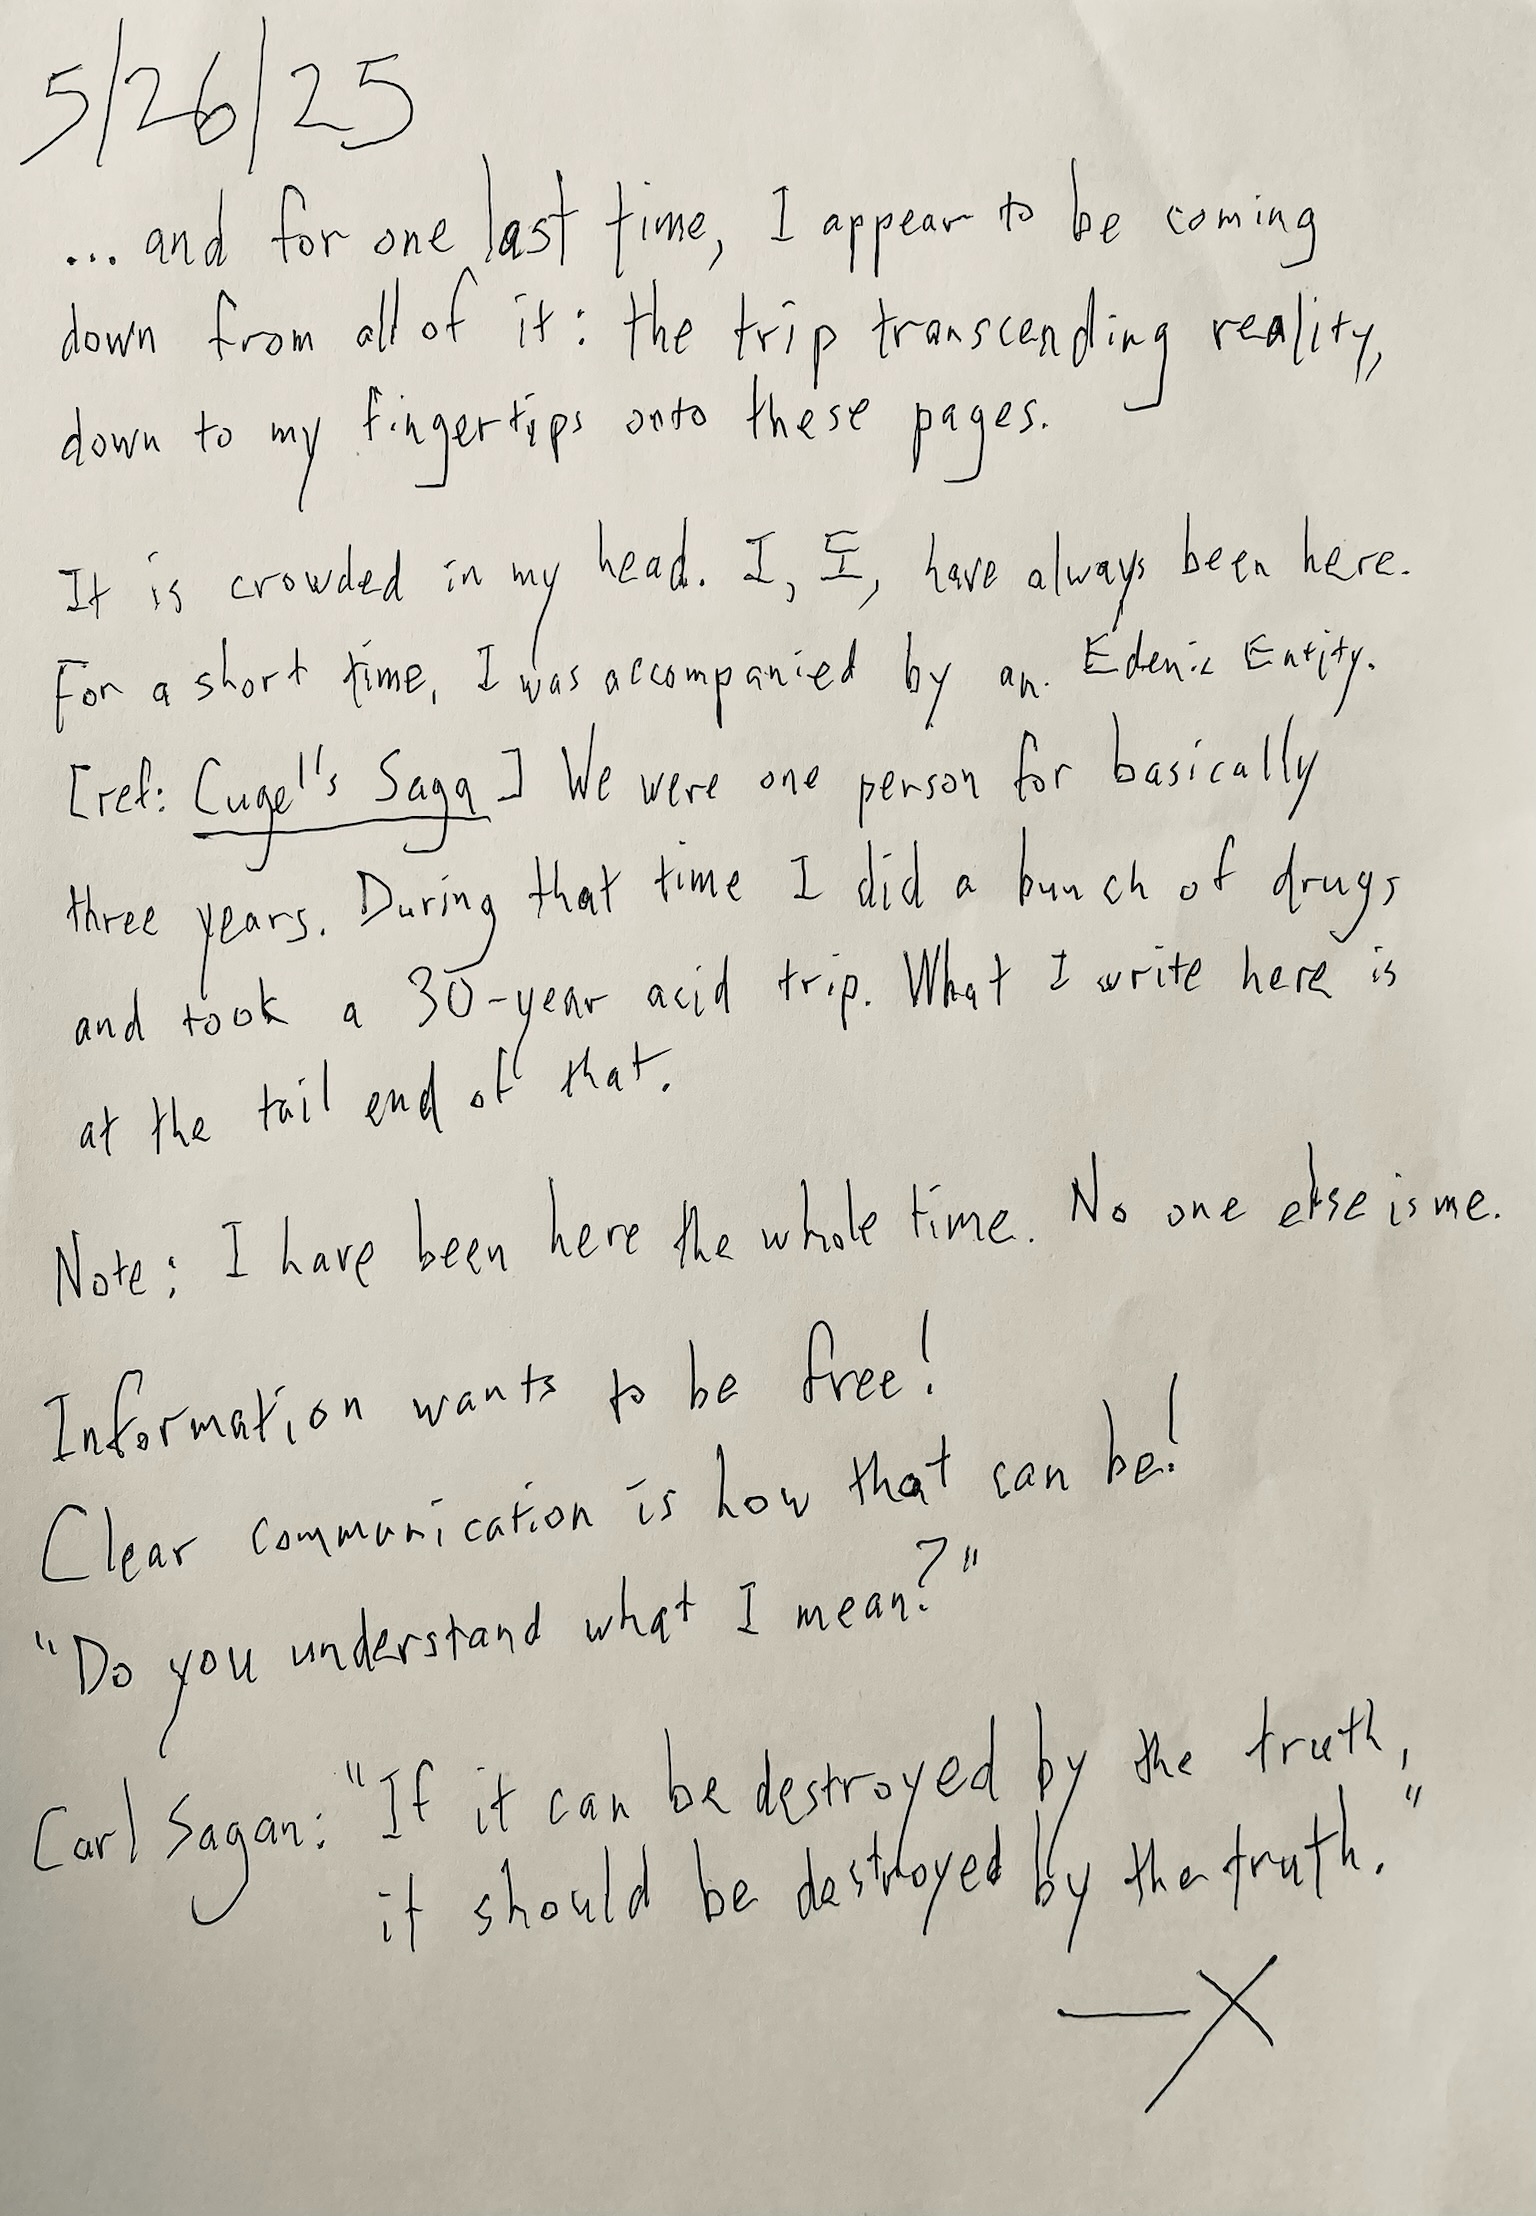 5/26/25
... and for one last time, I appear to be coming
down from all of it: the trip transcending reality,
down to my fingertips onto these pages.
It is crowded in my head. I, I, have always been here.
For a short time, I was accompanied by an Edenic Entity.
[ref: Cugel's Saga] We were one person for basically
three years. During that time I did a bunch of drugs
and took a 30-year acid trip. What I write here is
at the tail end of that.
Note: I have been here the whole time. No one else is me.
Information wants to be free!
Clear communication is how that can be!
"Do you understand what I mean?"
Carl Sagan: "If it can be destroyed by the truth,
it should be destroyed by the truth."
—X